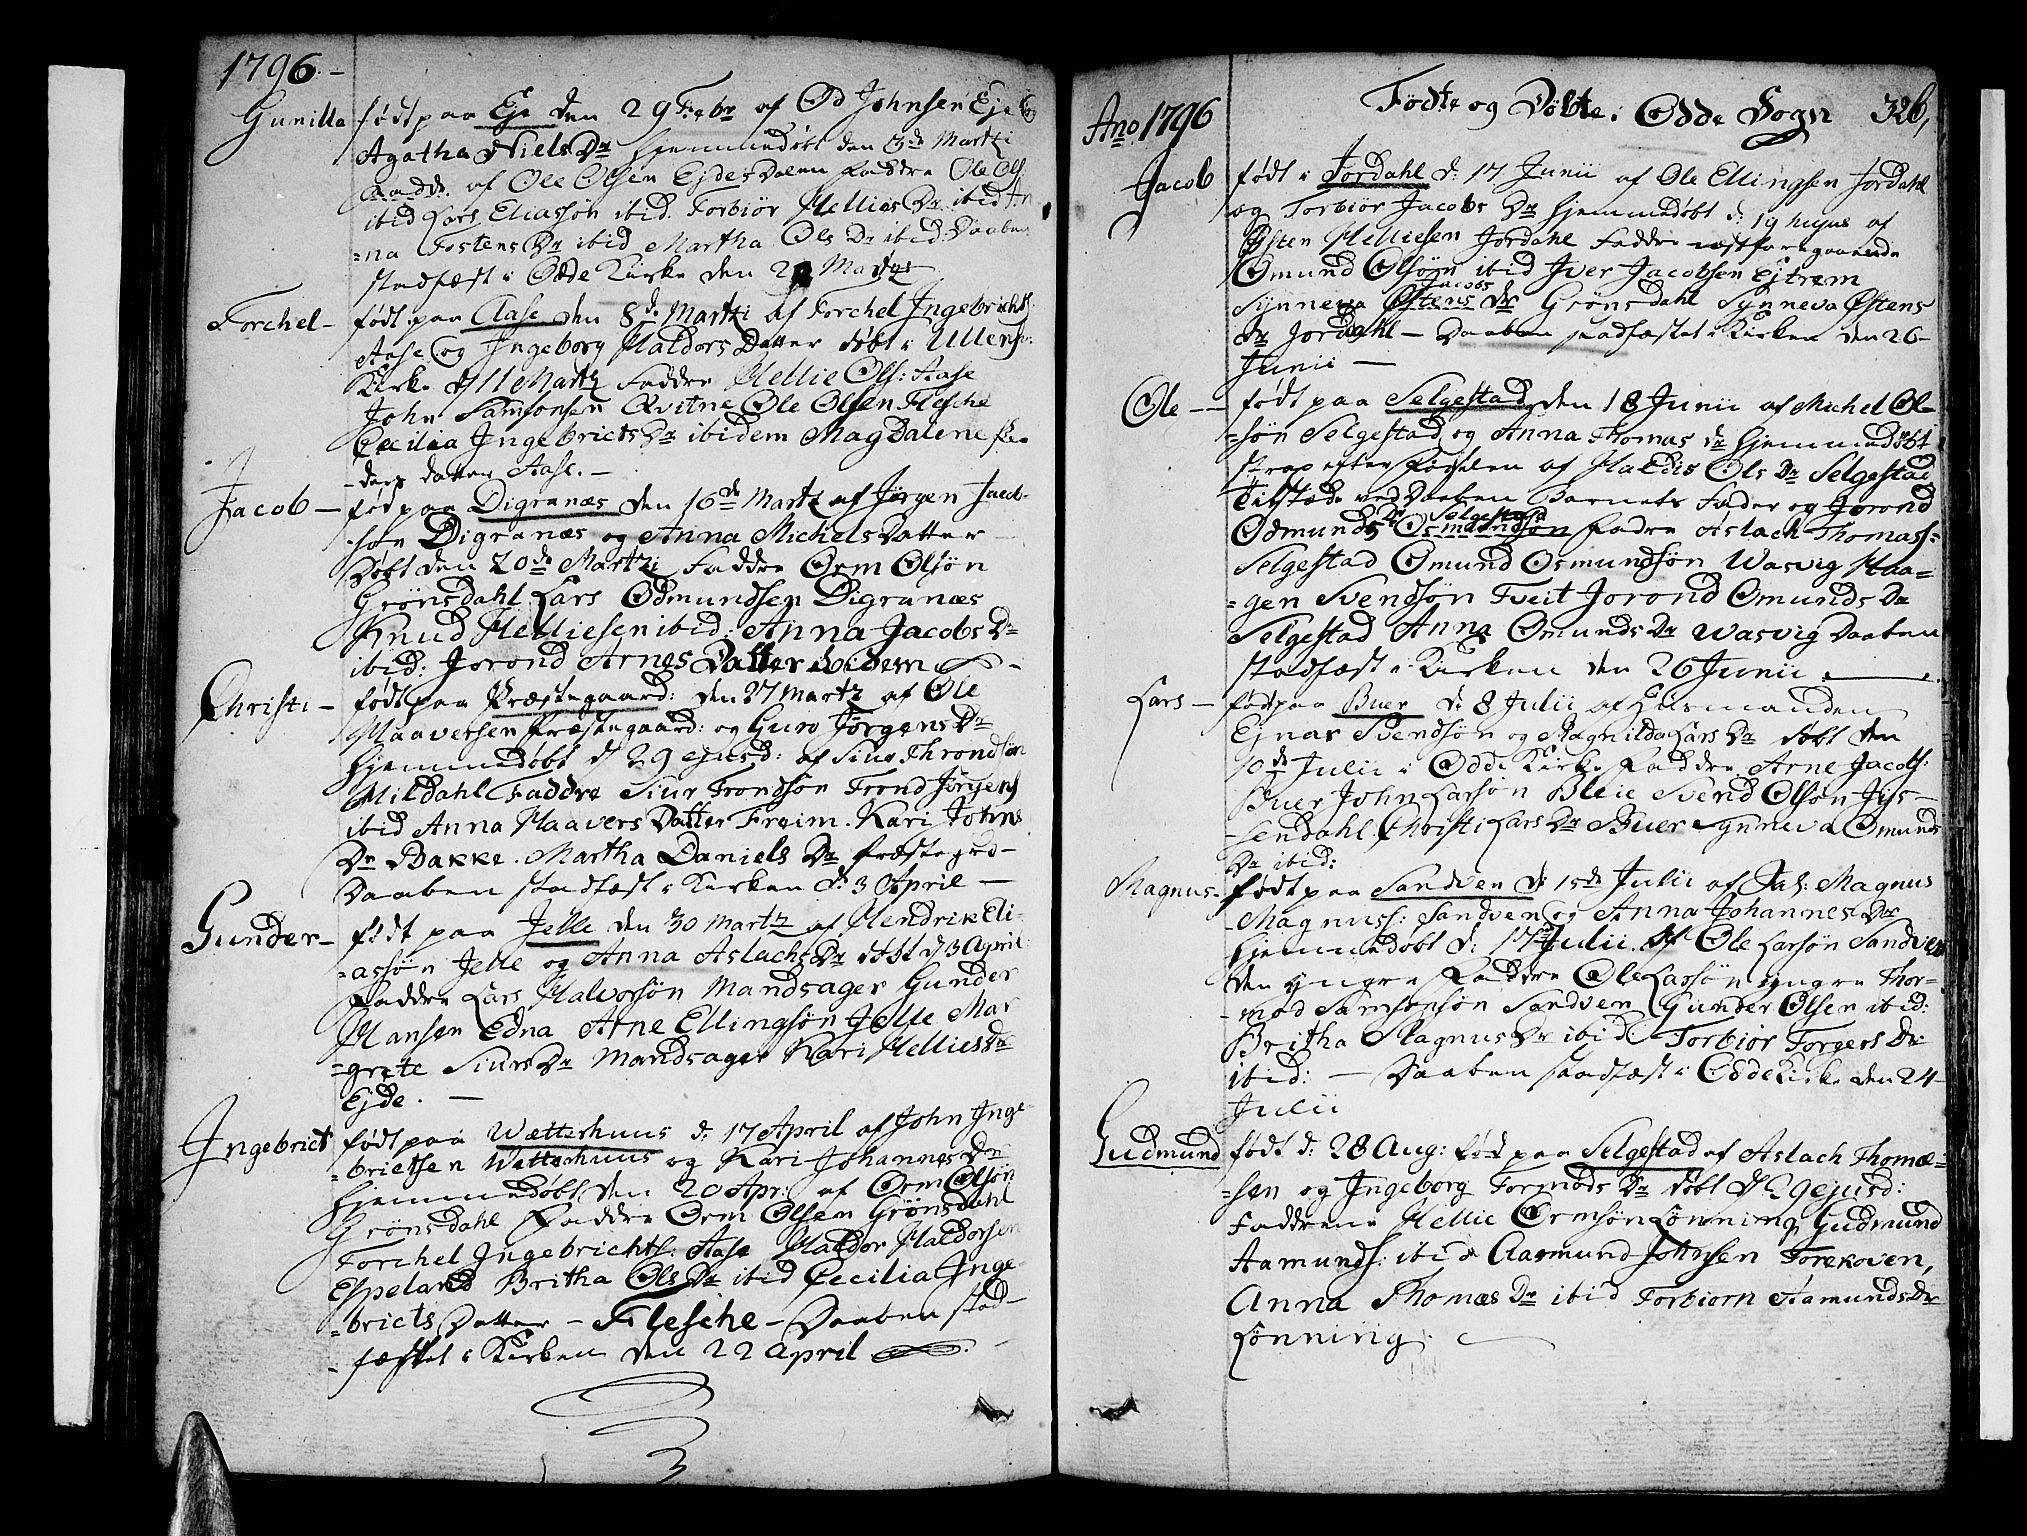 1796.-
Gunilla født paa Eje den 29 Febr af Od Johnsen Eje &
Agatha Niels Dr Hjemmedøbt den 3de Martii
af Ole Olsen Ejdesdalen Faddre Ole Ols
ibid Lars Eliassøn ibid. Torbiør Hellies Dr ibid An
=na Tostens Dr ibid Martha Ols Dr ibid Daaben
stadfæst i Odde Kirke den Martii
Torchel- født paa Aase den 8de Martii af Torchel Ingebrichts:
Aase og Ingeborg Haldors Datter døbt i Ullens:
Kirke d 11 Martz Faddre Hellie Ols: Aase
John Samsonsen Qvitne Ole Olsen Flesche
Cecilia Ingebricts Dr ibidem Magdalene Pe-
-ders datter Aase.-
Jacob- fød paa Digranæs den 16de Martz af Jørgen Jacob-
-søn Digranæs og Anna Michels Datter
Døbt den 20de Martzi Faddre Orm Olsøn
Grønsdahl Lars Odmundsen Digranæs
Knud Helliesen ibid: Anna Jacobs Dr
ibid: Jorond Arnes Datter ibidem
Christi- født paa Præstegaard: den 27 Martz af Ole
Haaversen Præstegaard: og Guro Jørgens Dr
Hjemmedøbt d 29 ejusd: af Siur Throndsøn
Mildahl Faddre Siur Trondsøn Trond Jørgens
ibid Anna Haavers Datter Freim. Kari Johns
Dr Bakke. Martha Daniels Dr Præstegrd-
Daaben stadfæst i Kirken d: 3 April-
Gunder- født paa Jelle den 30 Martz af Hendrik Eli-
=assøn Jelle og Anna Aslachs Dr døbt d 3 April:
Faddre Lars Halvorsøn Mandsager Gunder
Hansen Edna Arne Ellingsøn Jelle Mar
=grete Siurs Dr Mandsager Kari Hellies Dr
Ejde.-
Ingebrict født paa Wetterhuus d: 17 April af John Inge
=brictsen Wetterhuus og Kari Johannes Dr
Hjemmedøbt den 20 Apr: af Orm Olsøn
Grønsdahl Faddre Orm Olsen Grønsdahl
Torchel Ingebrichts: Aase Haldor Haldorsen
Espeland Britha Ols Dr ibid Cecilia Inge
=bricts Datter - Flesche - Daaben stad-
-fæstet i Kirken den 22 April
Ano 1796 Fødte og Døbte i Odde Sogn 326,
Jacob født i Jordahl d: 17 Junii af Ole Ellingsen Jordahl
og Torbiør Jacobs Dr Hjemmedøbt d: 19 hujus af
Østen Helliesen Jordahl Faddre næstforegaaende
Omund Olsøn ibid Iver Jacobsen Ejtrem
Jacobs
Synneva Østens dr Grønsdahl Synneva Østens
Dr Jordahl - Daaben stadfæstet i Kirken den 26-
Junii-
Ole -- født paa Selgestad den 18 Junii af Michel Ol-
=søn Selgestad og Anna Thomas dr Hjemmedøbt
strax efter Fødselen af Haldis Ols Dr Selgestad
Tilstæde ved Daaben Barnets Fader og Jorond
Dr Selgestad
Odmunds Osmundsøn Fadre Aslach Thomass=
Selgestad Omund Osmundsøn Wasvig Haa=
=gen Svendsøn Tveit Jorond Omunds Dr
Selgestad Anna Omunds Dr Wasvig Daaben
stadfæst i Kirken den 26 Junii.
Lars- fød paa Buer d: 8 Julii af Husmanden
Ejnar Svendsøn og Ragnilda Lars Dr døbt den
10de Julii i Odde Kirke Faddre Arne Jacobs:
Buer John Larsøn Bleie Svend Olsøn Jis-
-sendahl Christi Lars Dr Buer Synneva Omunds
Dr ibid:
Magnus- født paa Sandven d 15de Julii af Magnus
Magnuss: Sandven og Anna Johannes Dr
Hjemmedøbt d: 17 Julii af Ole Larsøn Sandven
den yngre Faddre Ole Larssøn yngre Thor-
-mod Samsonsøn Sandven Gunder Olsen ibid:
Britha Magnus Dr ibid Torbiør Torgers Dr
ibid: - Daaben stadfæst i Odde Kirke den 24
Julii
Gudmund født d: 28 Aug: fød paa Selgestad af Aslach Thomæ-
-sen og Ingeborg Tormods Dr døbt d ejusd:
Faddrene Hellie Ormsøn Lønning Gudmund
Aamunds: ibid Aasmund Johnsen Torekoven,
Anna Thomæs Dr ibid Torbiorn Aamunds Dr
Lønning.